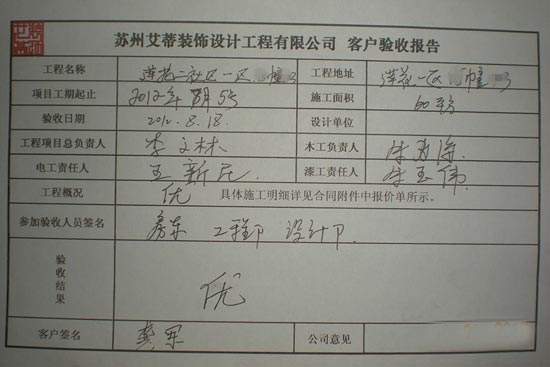 苏州艾蒂装饰设计工程有限公司 客户验收报告
工程名称 莲花二社区一区 幢 工程地址 莲花一区 幢
项目工期起止 2012年8月5号 施工面积 60平方
验收日期 2012.8.18. 设计单位
工程项目总负责人 李文林 木工负责人 朱 海
电工责任人 王新 漆工责任人 朱玉伟
工程概况 优 具体施工明细详见合同附件中报价单所示。
参加验收人员签名 房东 工程部 设计部
验收结果 优
客户签名 龚军 公司意见